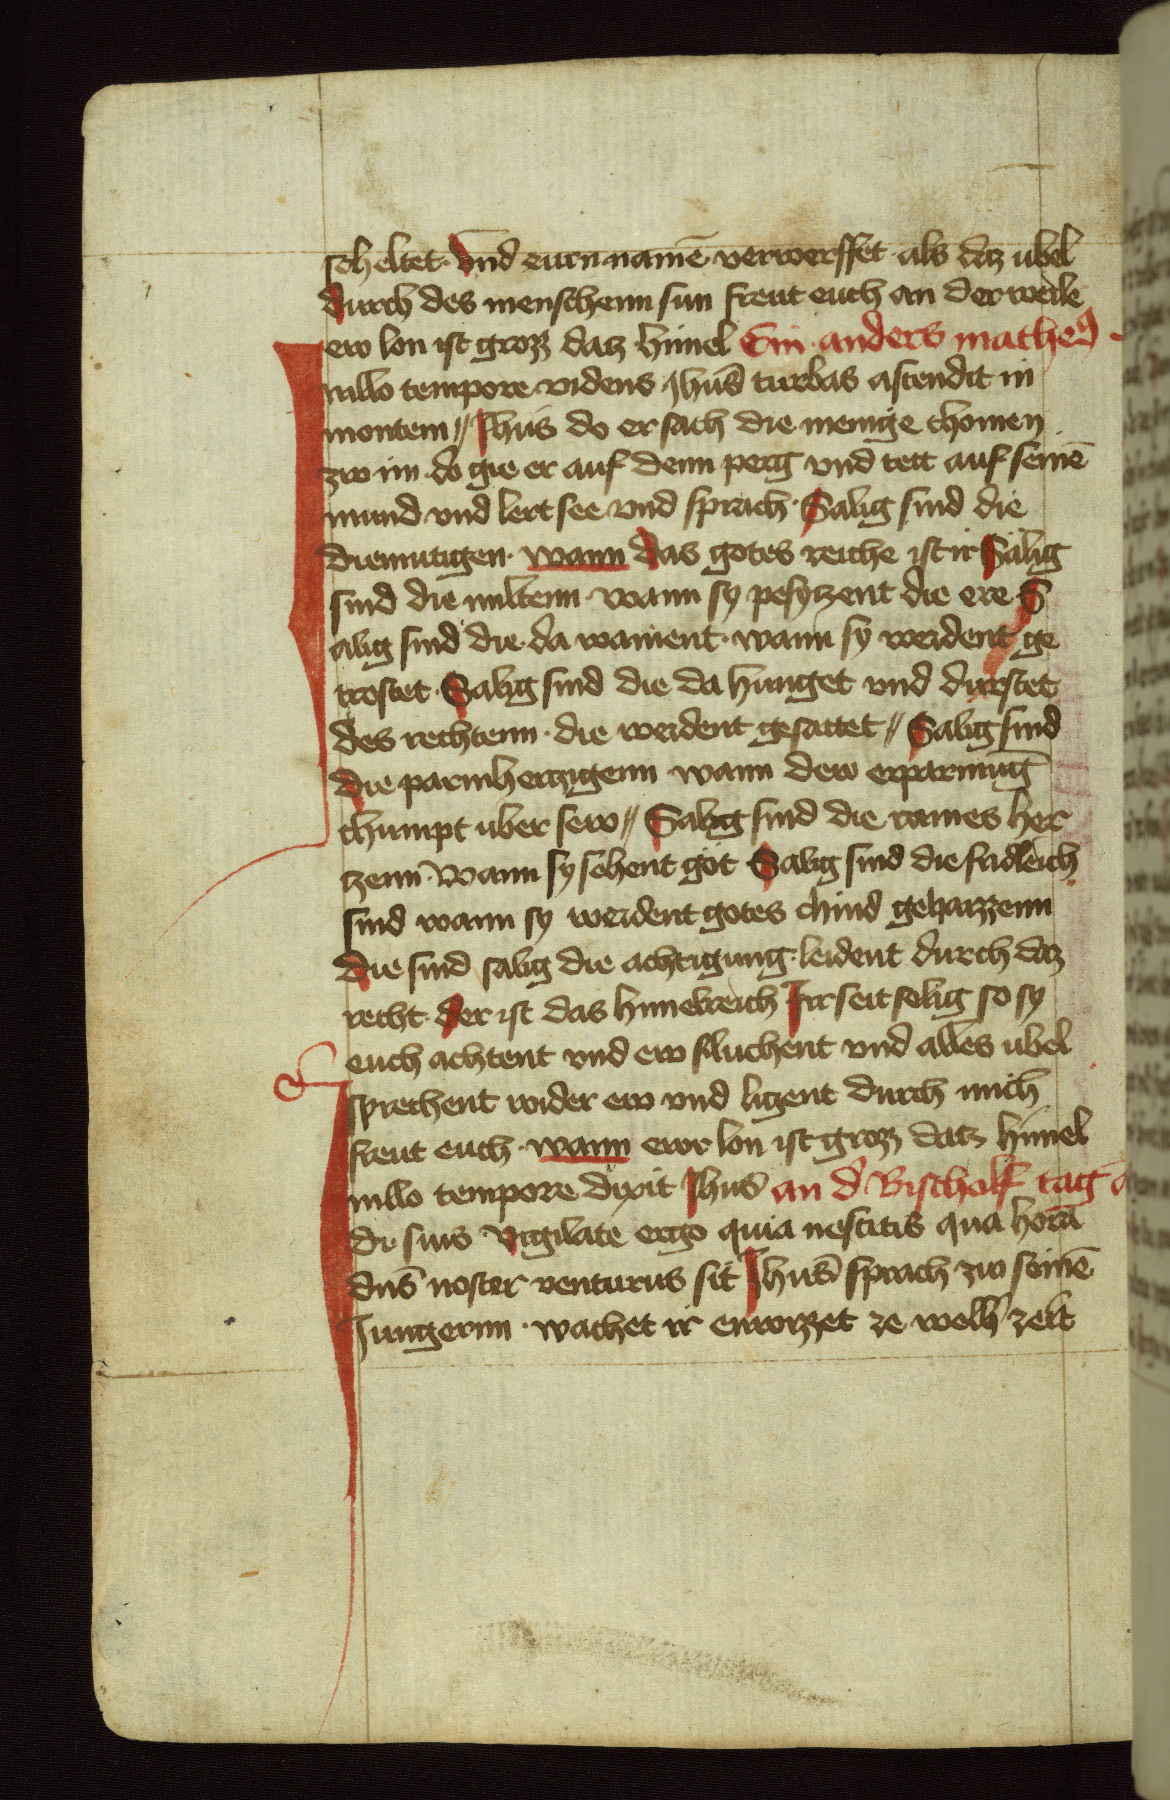 scheltet · vnd eurn namē verwerffet als daz ubel
durch des menschenn sun freut euch an der weile
ew lon ist grozz datz himel Ein anders matheꝯ
Inillo tempore videns Jhūs turbas ascendit in
montem // Jhūs do er sach die menige chomen
zw im do gie er auf denn perg vnd tett auf seinē
mund vnd lert see vnd sprach · Salig sind die
diemutigen · wann das gotes reiche ist ir Salig
sind die miltenn wann sy pesytzent die ere S
alig sind die da wainent · wann sy werdent ge
trostet · Salig sind die da hunget vnd durstet
des rechtenn · die werdent gesattet // Salig sind
die parmherczigenn wann dew erparmūg
chumpt uber sew // Salig sind die raines her
tzenn · wann sy sehent got Salig sind die fridleich
sind wann sy werdent gotes chind gehaizzenn
die sind salig die achtigung leident durch daz
recht · der ist das himelreich Ir seit selig so sy
euch achtent vnd ew fluchent vnd alles ubel
sprechent wider ew vnd ligent durch mich
freut euch · wann ewr lon ist grozz datz himel
Inillo tempore dixit Jhūs an d' Bischolf tag
di suis vigilate ergo quia nescitis qua hora
dn̄s noster venturus sit Jhūs sprach zw seinē
Jungernn · wachet ir enwizzet ze welh' zeit